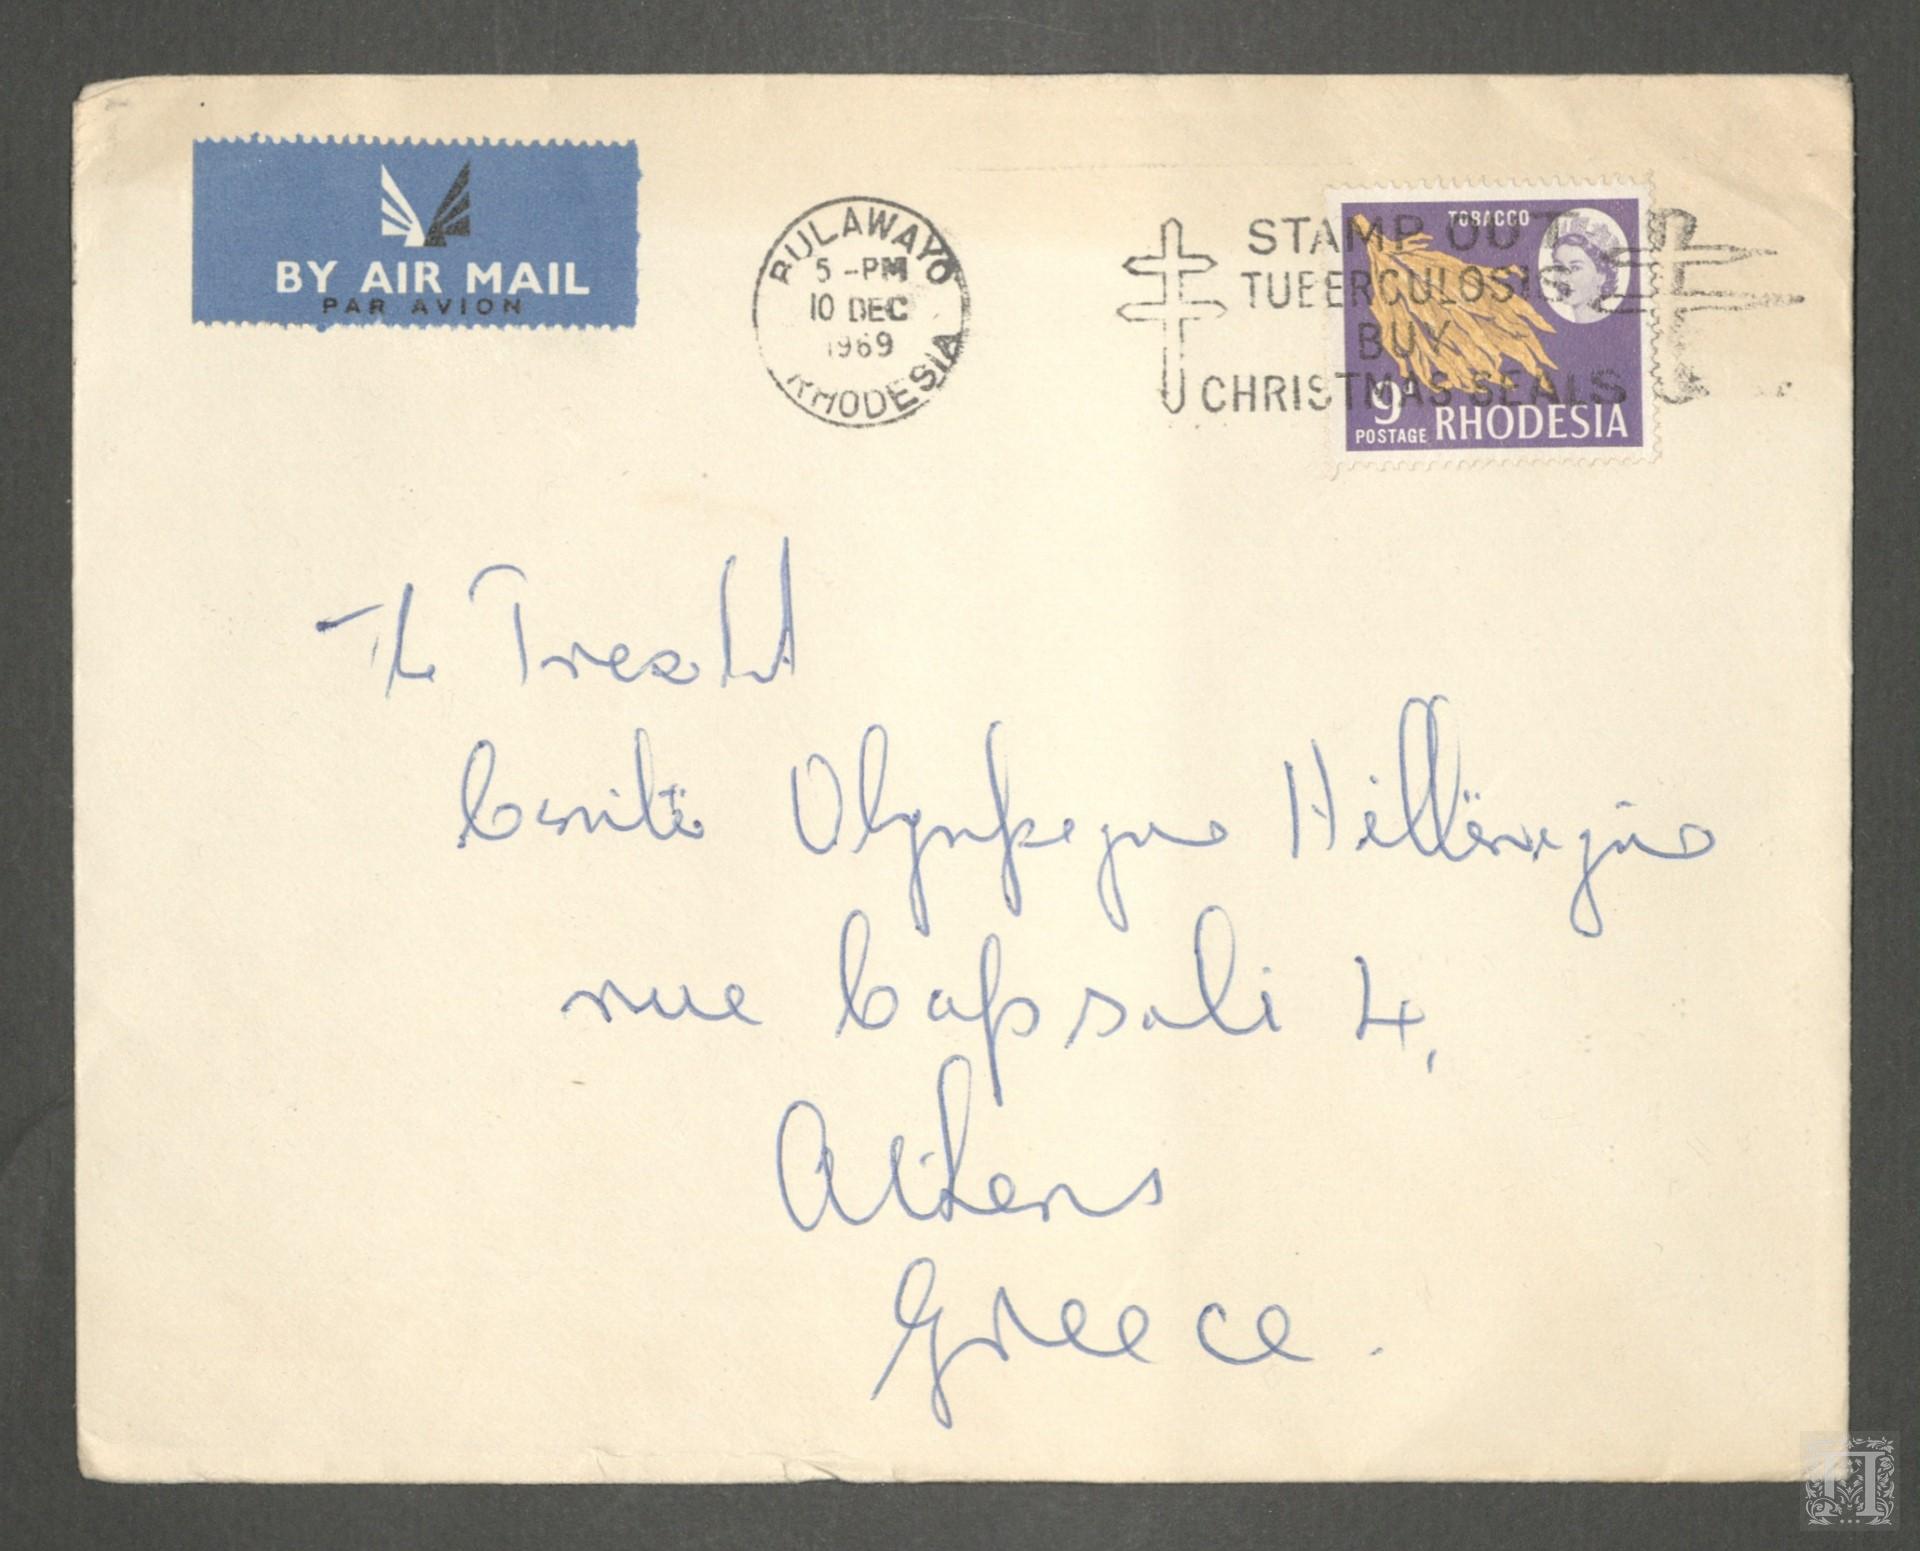 BY AIR MAIL
PAR AVION
BULAWAYO
5-PM
10 DEC
1969
RHODESIA
STAMP OUT
TUBERCULOSIS
BUY
CHRISTMAS SEALS
TOBACCO
9d
POSTAGE RHODESIA
The
Comité Olympique Hellénique
rue Capsali 4,
Athens
Greece.